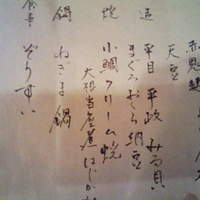 天豆
造 平目 平政 みる貝
まぐろ おくら納豆
焼 小鯛クリーム焼
大根当座煮 はじかみ
鍋 ねぎま鍋
食事 ぞうすい